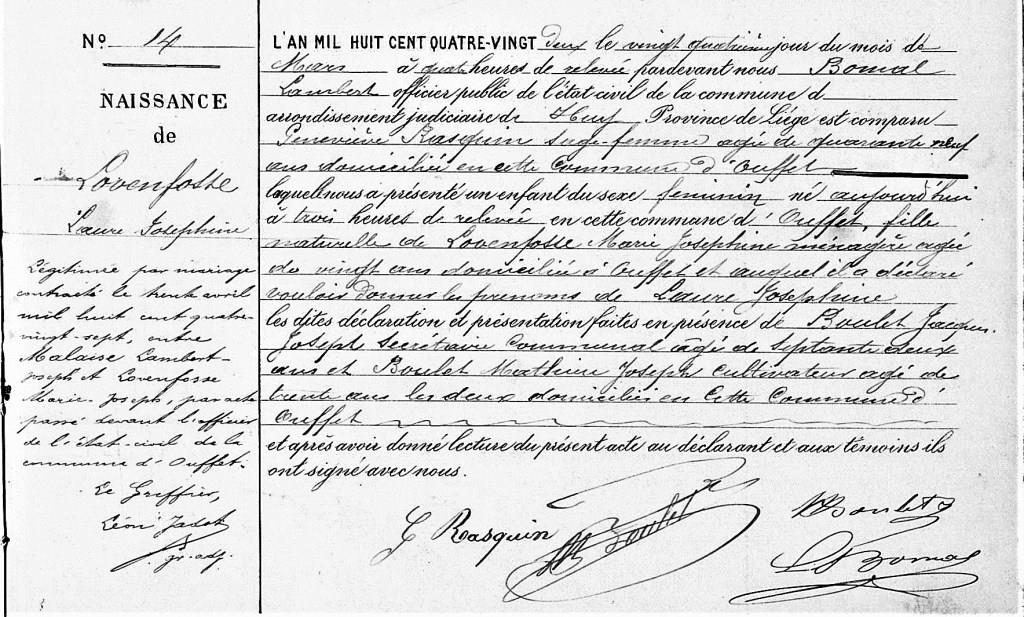 Nº 14
NAISSANCE
de
Lovenfosse
Laure Josephine
Légitimée par mariage
contracté le trente avril
mil huit cent quatre-
vingt-sept, entre
Malaise Lambert-
Joseph et Lovenfosse
Marie-Joseph, par acte
passé devant l'officier
de l'état-civil de la
commune d'Ouffet.
Le Greffier,
Léon Jadot
gr. adj.
L'AN MIL HUIT CENT QUATRE-VINGT deux le vingt quatrième jour du mois de
Mars à quatre heures de relevée pardevant nous Bomal
Lambert officier public de l'état civil de la commune d
arrondissement judiciaire de Huy Province de Liége est comparu
Geneviève Rasquin sage-femme agée de quarante neuf
ans domiciliée en cette Commune d'Ouffet
laquelle nous a présenté un enfant du sexe feminin né aujourd'hui
à trois heures de relevée en cette commune d'Ouffet, fille
naturelle de Lovenfosse Marie Josephine ménagère agée
de vingt ans domiciliée à Ouffet et auquel il a déclaré
vouloir donner les prenoms de Laure Josephine
les dites déclaration et présentation faites en présence de Boulet Jacques
Joseph Secrétaire Communal agé de septante deux
ans et Boulet Mathieu Joseph cultivateur agé de
trente ans les deux domiciliés en cette Commune d'
Ouffet
et après avoir donné lecture du présent acte au déclarant et aux témoins ils
ont signé avec nous.
G Rasquin
Boulet
Boulet
L Bomal